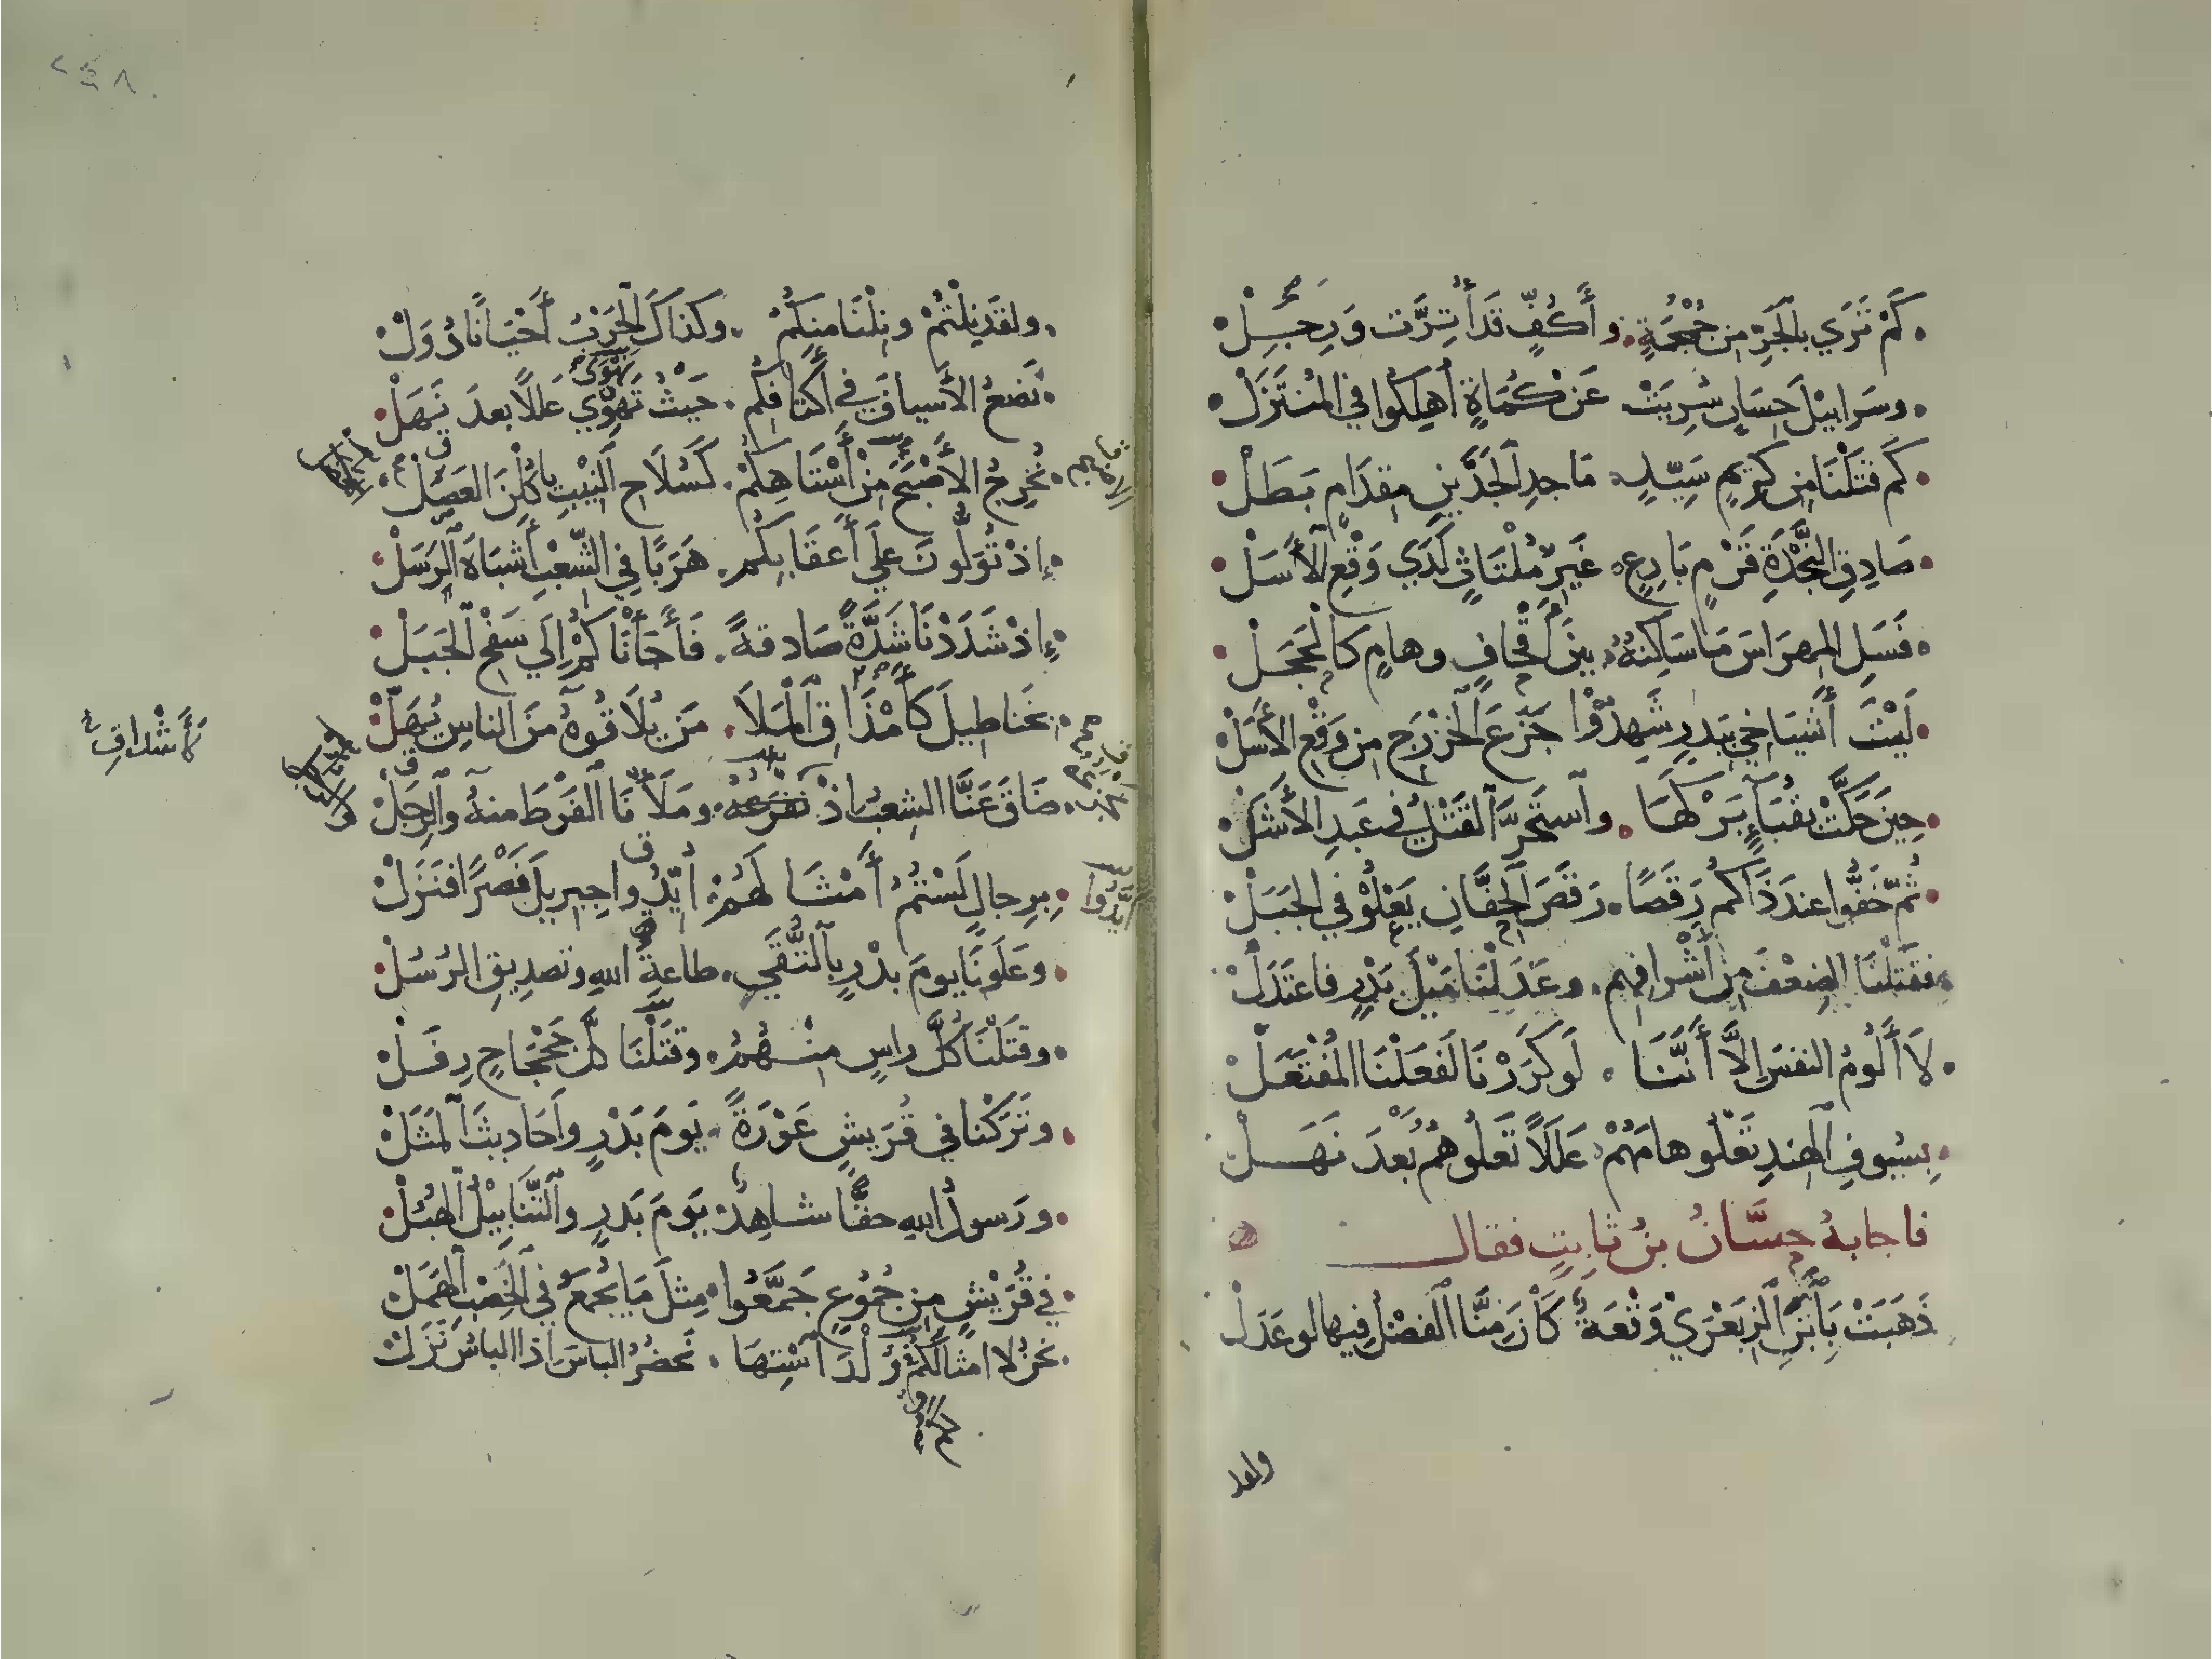 كَمْ تَرَي بالجَرِّ مِن جُمْجُمَةٍ . وأَكُفٍّ قَد أُتِرَّت وَرِجِلْ
وسَرابيْلَ حِسَانٍ سُرِيَتْ عَنْ كُمَاةٍ أُهلِكُوا في المُنتَزَلْ
كَم قتَلْنَا مِن كَرِيمٍ سَيّدٍ ماجدِ الجَدَّينِ مِقدَامٍ بَطَلْ
صَادِقِ النَّجْدَةِ قَرْمٍ بَارِعٍ غَيرِ مُلْتَاثٍ لَدَي وَقْعِ الأَسَلْ
فَسَلِ المِهرَاسَ مَا سَاكِنُهُ بينَ أَقحافٍ وهامٍ كالحَجَلْ
لَيْتَ أَشيَاخِي بِبَدرٍ شَهِدُوْا جَزَعَ الخَزْرَجِ مِن وَقْعِ الأَسَلْ
حِينَ حَكَّتْ بقُبَاءٍ بَرْكَهَا . واستَحَرَّ القَتْلُ في عَبدِ الأَشَلْ
ثُمّ خَفُّوا عندَ ذَاكُم رَقَصًا . رَقَصَ الحَفَّانِ يَعْلُوْ في الجَبَلْ
فقَتَلْنَا الضِعْفَ مِن أَشْرافِهِم . وعَدَلْنَا مَيْلَ بَدْرٍ فاعتَدَلْ
لاَ أَلُومُ النفسَ إلَّا أَنَّنَا . لَو كَرَرْنَا لَفَعَلْنَا المُفْتَعَلْ
بِسُيوفِ الهندِ تَعْلُو هامَهُمْ عَلَلاً تَعْلُوهُم بَعْدَ نَهَلْ
فاجابهُ حسَّانُ بنُ ثابتٍ فقال
ذَهَبَتْ بِابْنِ الزِبَعْرَيْ وَقْعَةٌ كَانَ مِنَّا الفضْلُ فيها لو عَدَلْ
ولقد
ولقَد نِلْتُمْ ونِلْنَا منكُمُ . وكذاكَ الحَرْبُ أَحْيَانًا دُوَلْ
نَضعُ الأَسيافَ في أَكتَافِكُم . حَيْثُ تَهوِي عَلَلاً بعدَ نَهَلْ
نُخرِجُ الأَصْبَحَ مِنْ أَسْتَاهِكُمْ . كَسُلَاحِ النِيْبِ يأكُلْنَ العَصَلْ
إذْ تُوَلُّونَ عَلَي أَعقَابِكُم . هَرَبًا في الشِّعْبِ أَشبَاهَ الرَسَلْ
إذْ شَدَدْنَا شَدَّةً صَادقةً . فَأَجَأْنَاكُمْ إلَي سَفْحِ الجَبَلْ
بخَناطِيلَ كَأَمْذَاقِ المَلاَ . مَن يُلَاقُوهُ مِنَ الناسِ يُهَلّْ
كَأَشْدَافِ
ضَاقَ عَنَّا الشِعبُ إذْ نَفْرَعُهُ . ومَلَأْنَا الفَرْطَ منهُ والرِجَلْ
بِرِجالٍ لَسْتُمُ أَمْثَالَهُمْ أُيِّدُوا جِبرِيلَ نَصْرًا فنَزَلْ
أُيِّدُوا
وعَلَونَا يومَ بدْرٍ بِالتُّقَي . طاعةِ اللهِ وتصدِيقِ الرُسُلْ
وقتَلْنَا كُلَّ راسٍ مِنْهُمُ . وقتَلْنَا كُلَّ جَحْجَاحٍ رِفَلْ
وتَرَكْنا في قُرَيشٍ عَوْرَةً . يَومَ بَدْرٍ وأَحَادِيثَ المَثَلْ
ورَسولُ اللهِ حقًّا شاهِدٌ يَومَ بَدرٍ والتَّنَابِيْلُ الهُبُلْ
في قُرَيْشٍ مِن جُمُوعٍ جَمَّعُوا . مِثلَ مَا يُجمَعُ في الخِصْبِ الهَمَلْ
نحنُ لا امثالكُمْ وُلْدَ استِهَا . نَحضُرُ الباسَ إذا الباسُ نَزَلْ
٢٤٨